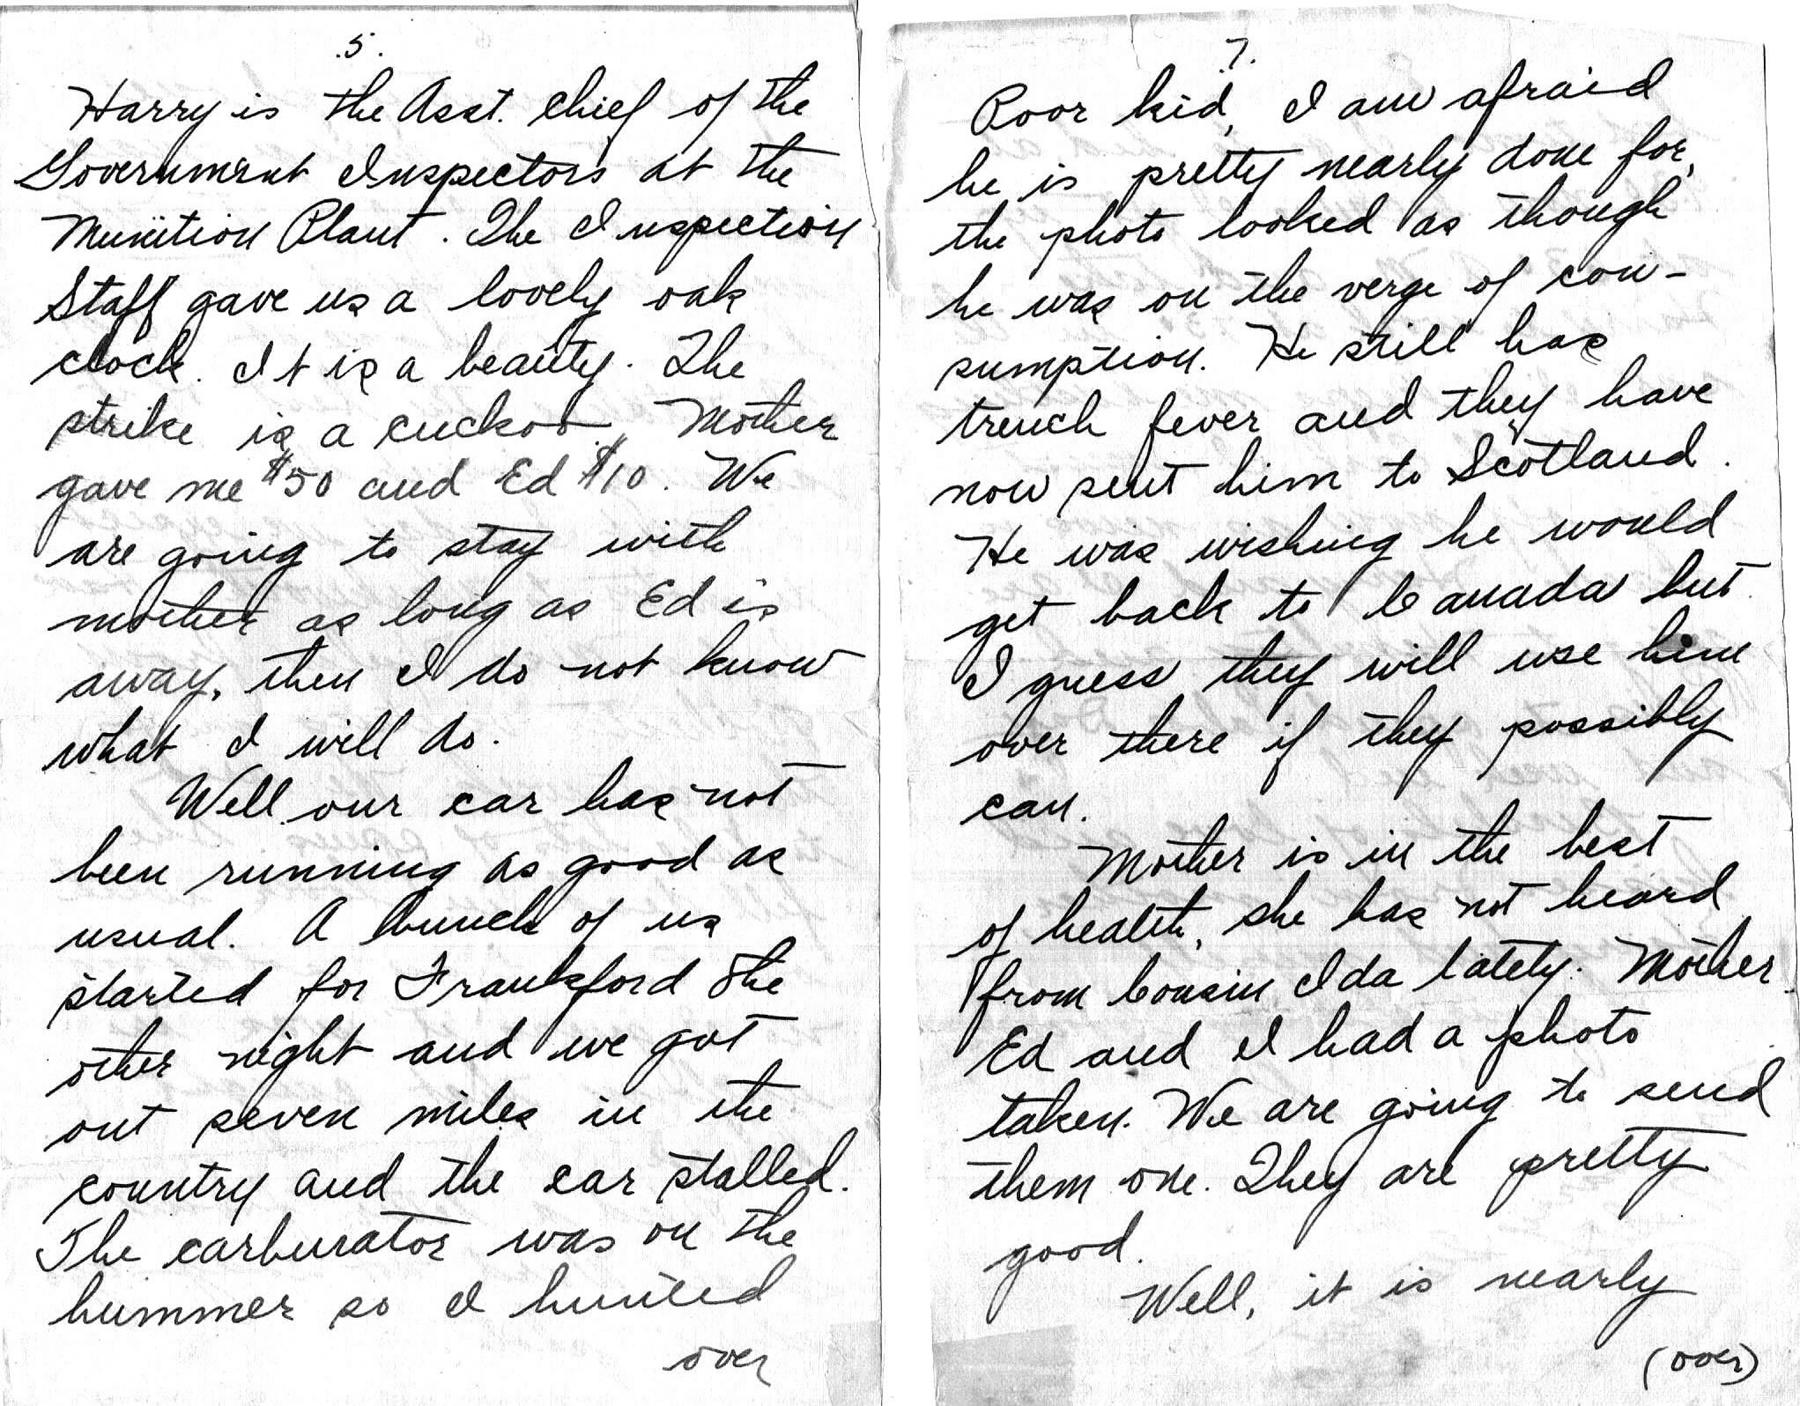 .5.
Harry is the Asst. Chief of the
Government Inspectors at the
Munition Plant. The Inspection
Staff gave us a lovely oak
clock. It is a beauty. The
strike is a cuckoo. Mother
gave me $50 and Ed $10. We
are going to stay with
mother as long as Ed is
away, then I do not know
what I will do.
Well our car has not
been running as good as
usual. A bunch of us
started for Frankford the
other night and we got
out seven miles in the
country and the car stalled.
The carburator was on the
bummer so I hunted
over
.7.
Poor kid, I am afraid
he is pretty nearly done for,
the photo looked as though
he was on the verge of con-
sumption. He still has
trench fever and they have
now sent him to Scotland.
He was wishing he would
get back to Canada but
I guess they will use him
over there if they possibly
can.
Mother is in the best
of health, she has not heard
from Cousin Ida lately. Mother
Ed and I had a photo
taken. We are going to send
them one. They are pretty
good.
Well, it is nearly
(over)